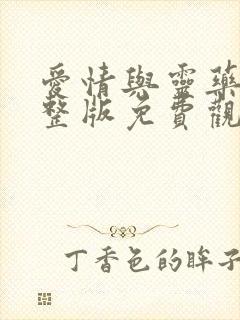 愛情與靈藥
整版免費觀
丁香色的眸子